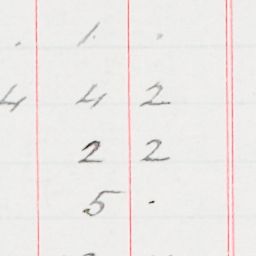 . 1 .
4 4 2
2 2
5 .